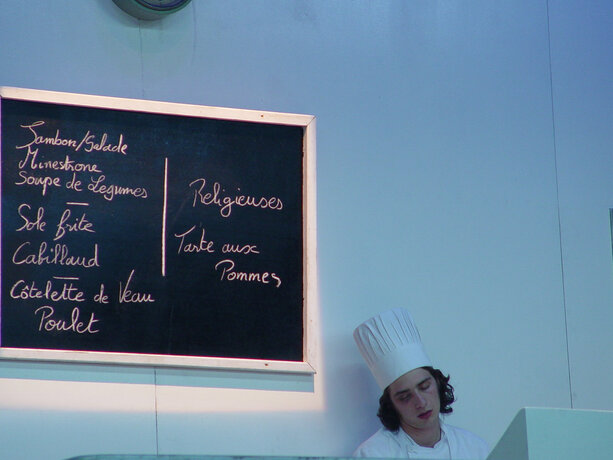 Jambon/Salade
Minestrone
Soupe de Legumes
Sole frite
Cabillaud
Côtelette de Veau
Poulet
Religieuses
Tarte aux
Pommes